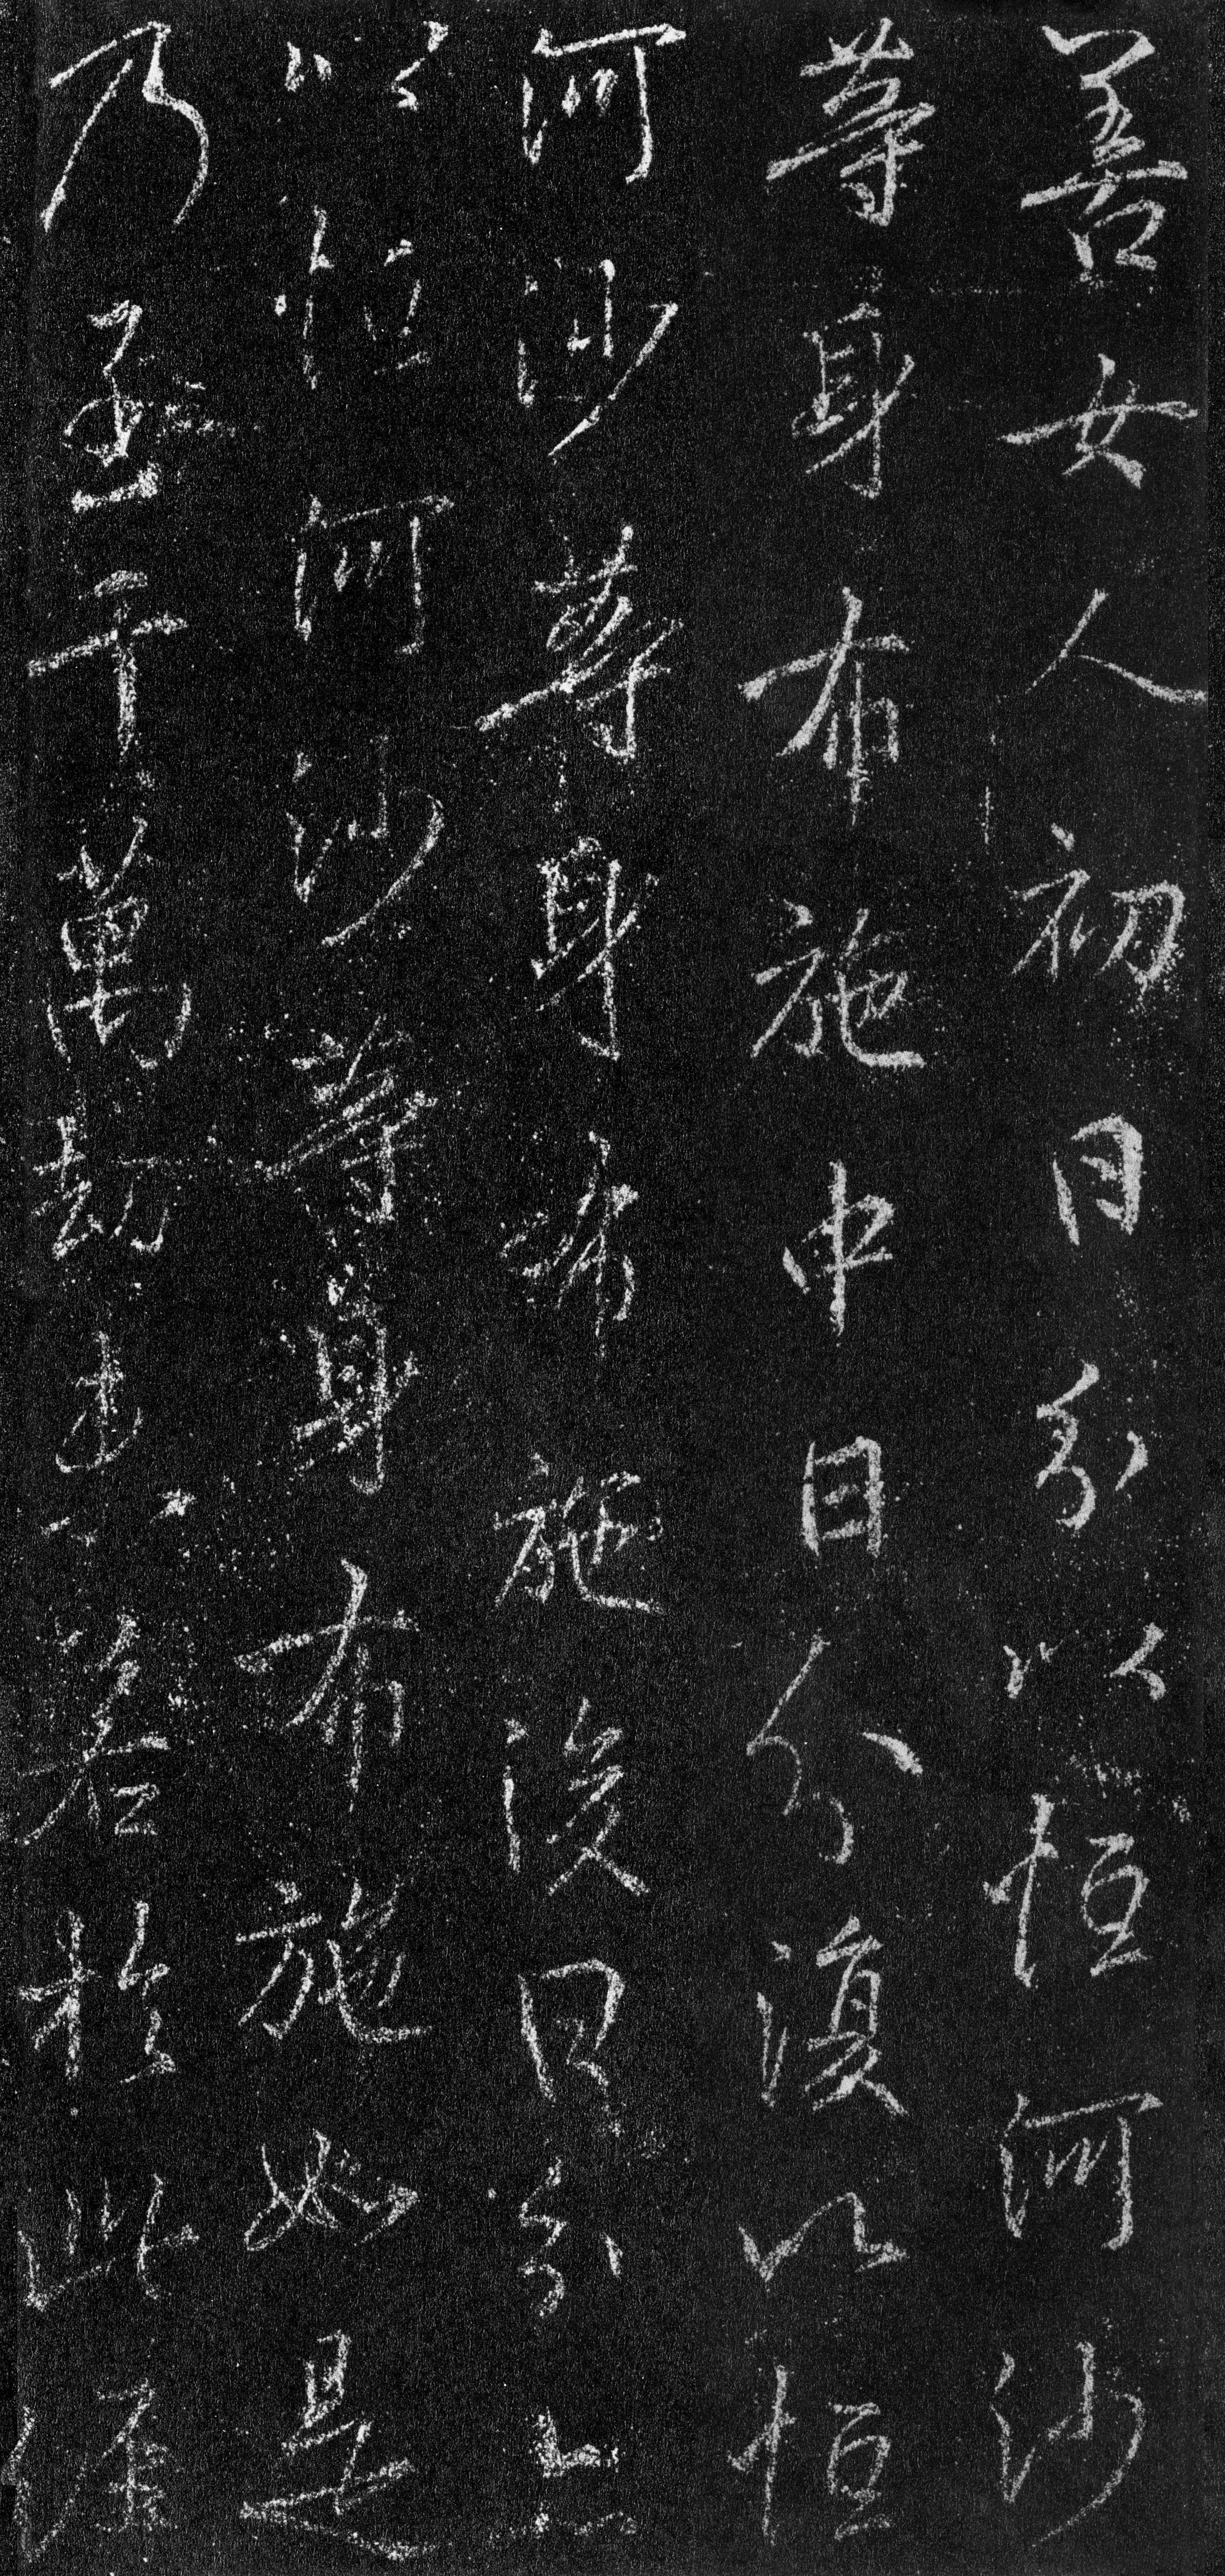 善女人初日分以恒河沙
等身布施中日分復以恒
河沙等身布施後日分亦
以恒河沙等身布施如是
乃至千萬劫若於此經